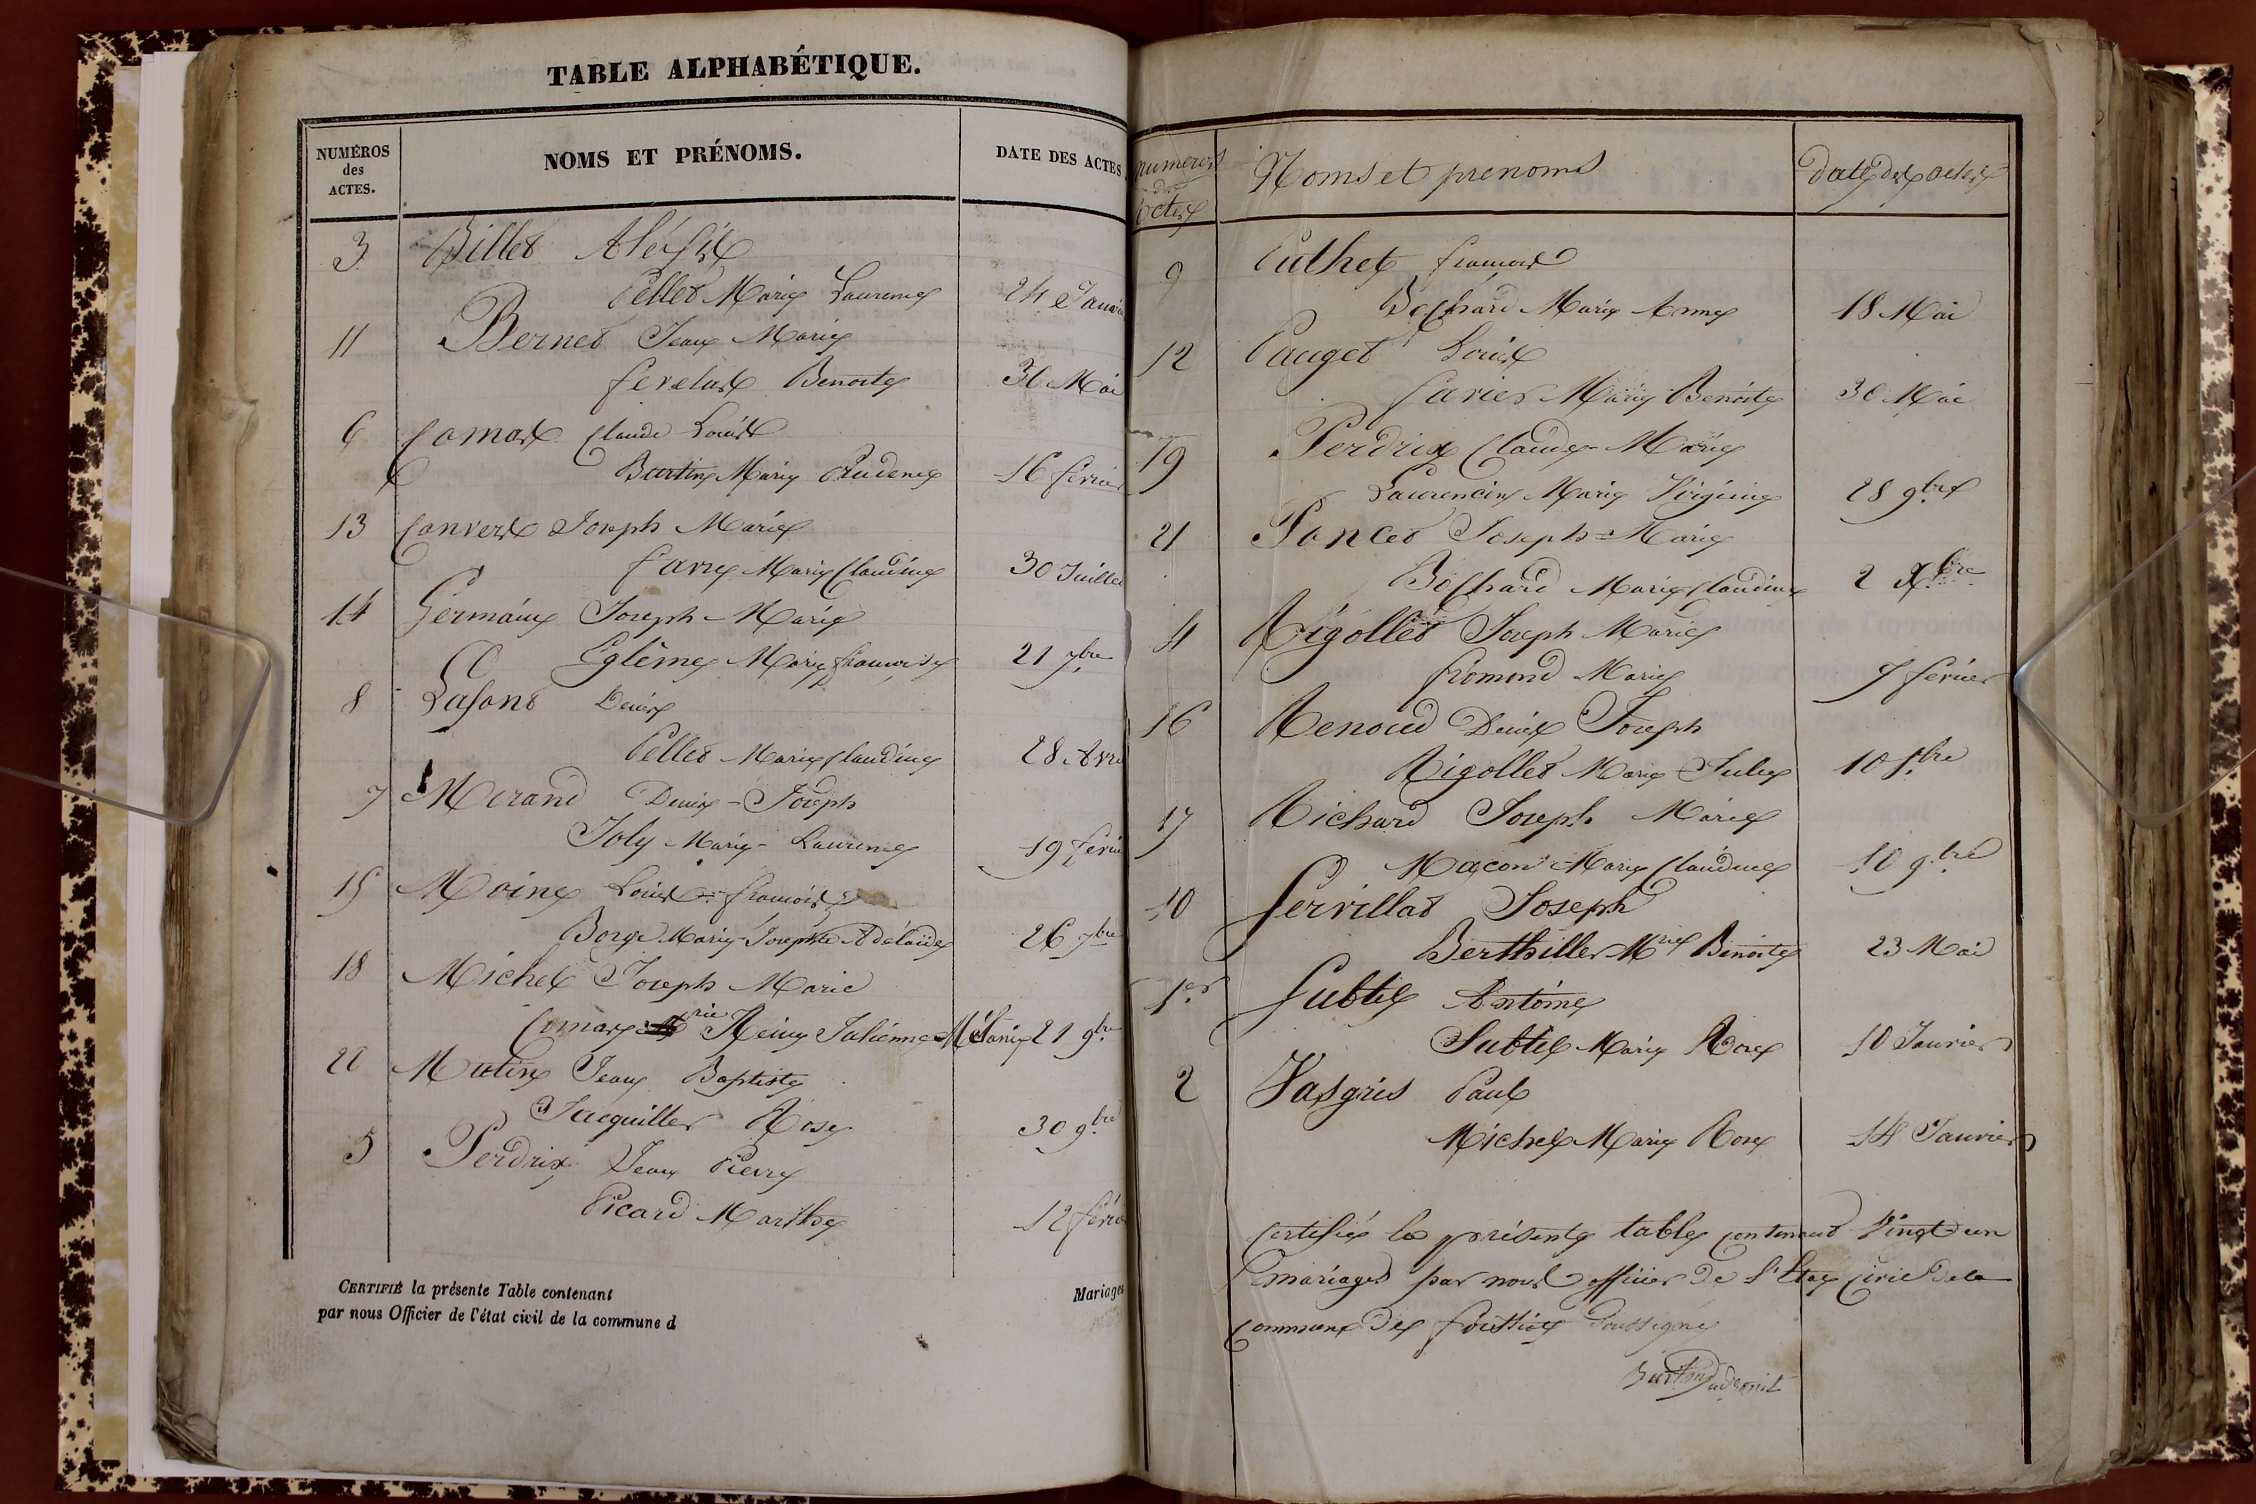 TABLE ALPHABÉTIQUE.
NUMÉROS des ACTES.
NOMS ET PRÉNOMS.
DATE DES ACTES
3 Billet Alexis
Pellet Marie Laurence 24 Janvi
11 Bernet Jean Marie
Benoite 30 Mai
6 Comas Claude Louis
Burtin Marie Prudence 16 février
13 Convers Joseph Marie
favre Marie Claudine 30 Juillet
14 Germain Joseph-Marie
Eglême Marie françoise 21 7bre
8 Lafont Denis
Pellet Marie Claudine 28 Avri
7 Morand Denis-Joseph
Joly Marie-Laurence 19 févrie
15 Moine Louis-françois
Borge Marie Josephte Adélaïde 26 7bre
18 Michel Joseph Marie
Comas Reine Julienne-Mélanie 21 9bre
20 Mutin Jean Baptiste
Jacquiller Rose 30 9bre
5 Perdrix Jean Pierre
Picard Marthe 12 févri
CERTIFIÉ la présente Table contenant Mariages
par nous Officier de l'état civil de la commune d
numeros des actes
Noms et prenoms
date des actes
9 Puthet francois
Bochard Marie Anne 18 Mai
12 Pauget Louis
favier Marie Benoite 30 Mai
19 Perdrix Claude-Marie
Laurencin Marie Virginie 28 9bre
21 Poncet Joseph=Marie
Bochard Marie Claudine 2 Xbre
4 Rigollet Joseph Marie
fromond Marie 7 février
16 Renoud Denis Joseph
Rigollet Marie Julie 10 8bre
17 Richard Joseph Marie
Maçon Marie Claudine 10 9bre
10 Servillat Joseph
Berthiller Mrie Benoite 23 Mai
1er Subtil Antoine
Subtil Marie Rose 10 Janvier
2 Vasgris Paul
Michel Marie Rose 14 Janvier
Certifié la présente table contenant Vingt-un
mariages par nous officier de l'Etat civil de la
commune des foissiat Soussigné